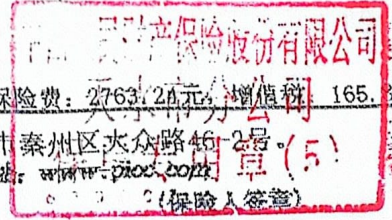 财产保险股份有限公司
天水市分公司
保险费：2763.21元，增值税：165.
市秦州区大众路46-2号。
www.picc.com
章（5）
（保险人签章）